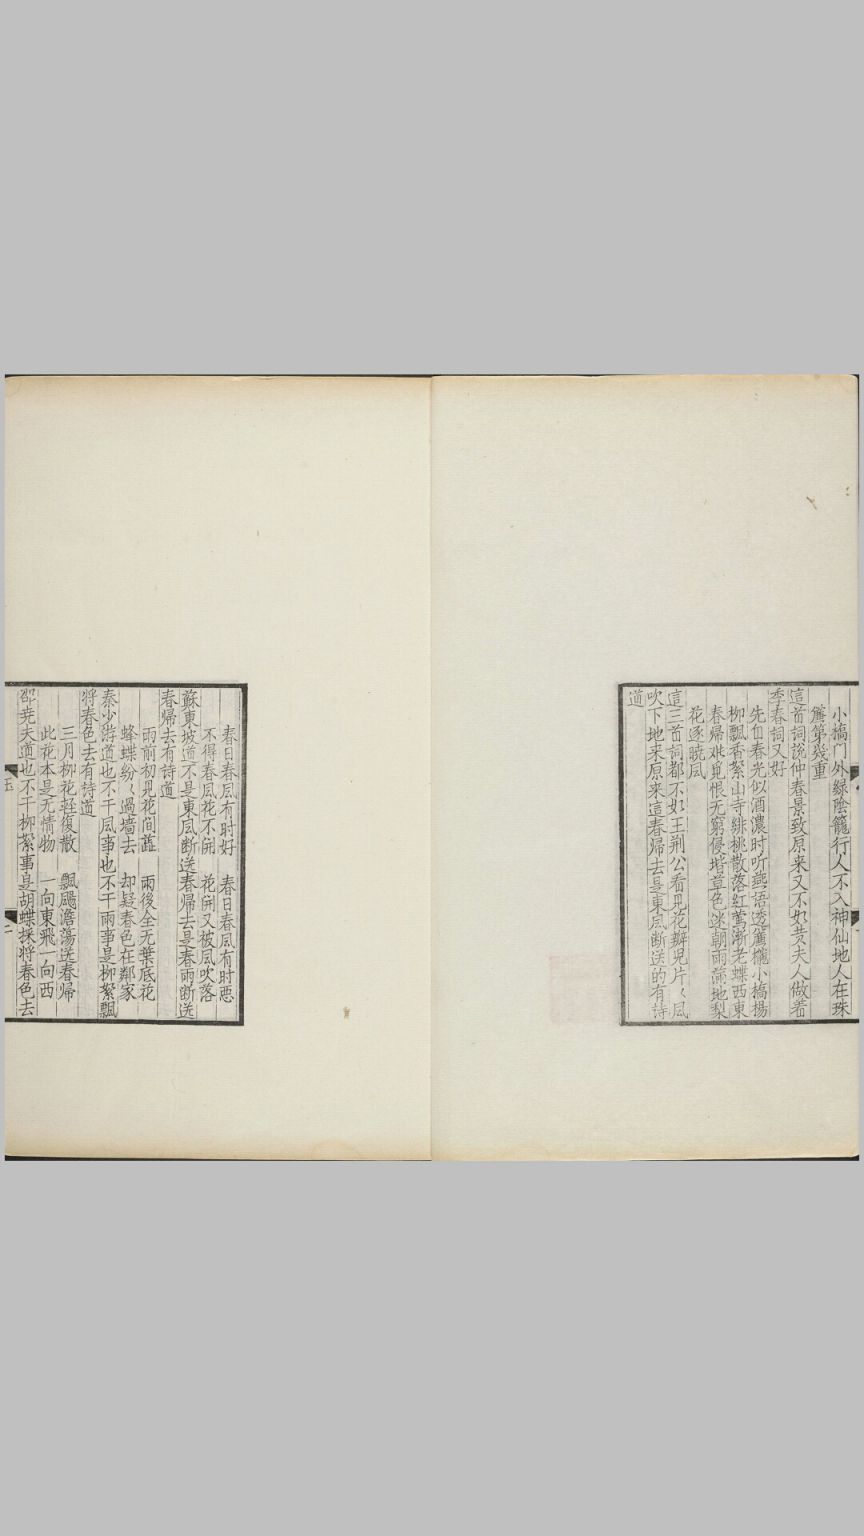 小橋門外緑陰籠行人不入神仙地人在珠
簾第幾重
這首詞說仲春景致原来又不如黄夫人做着
季春詞又好
先自春光似酒濃时听燕语透簾櫳小橋楊
柳飘香絮山寺緋桃散落红莺渐老蝶西東
春帰难覓恨无窮侵堦草色迷朝雨滿地梨
花逐曉风
這三首詞都不如王荆公看見花瓣兒片〻风
吹下地来原来這春帰去是東风断送的有詩
道
春日春风有时好　春日春风有时恶
不得春风花不開　花開又被风吹落
蘇東坡道不是東风断送春帰去是春雨断送
春帰去有诗道
雨前初見花间蕋　雨後全无葉底花
蜂蝶纷〻過墙去　却疑春色在鄰家
秦少游道也不干风事也不干雨事是柳絮飄
将春色去有诗道
三月柳花轻復散　飄颺澹蕩送春帰
此花本是无情物　一向東飛一向西
邵尭夫道也不干柳絮事是胡蝶採将春色去